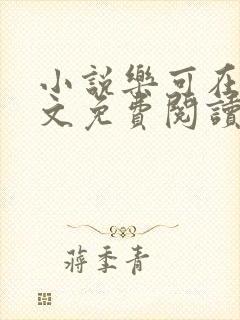 小說樂可在
文免費閱讀
蔣季青